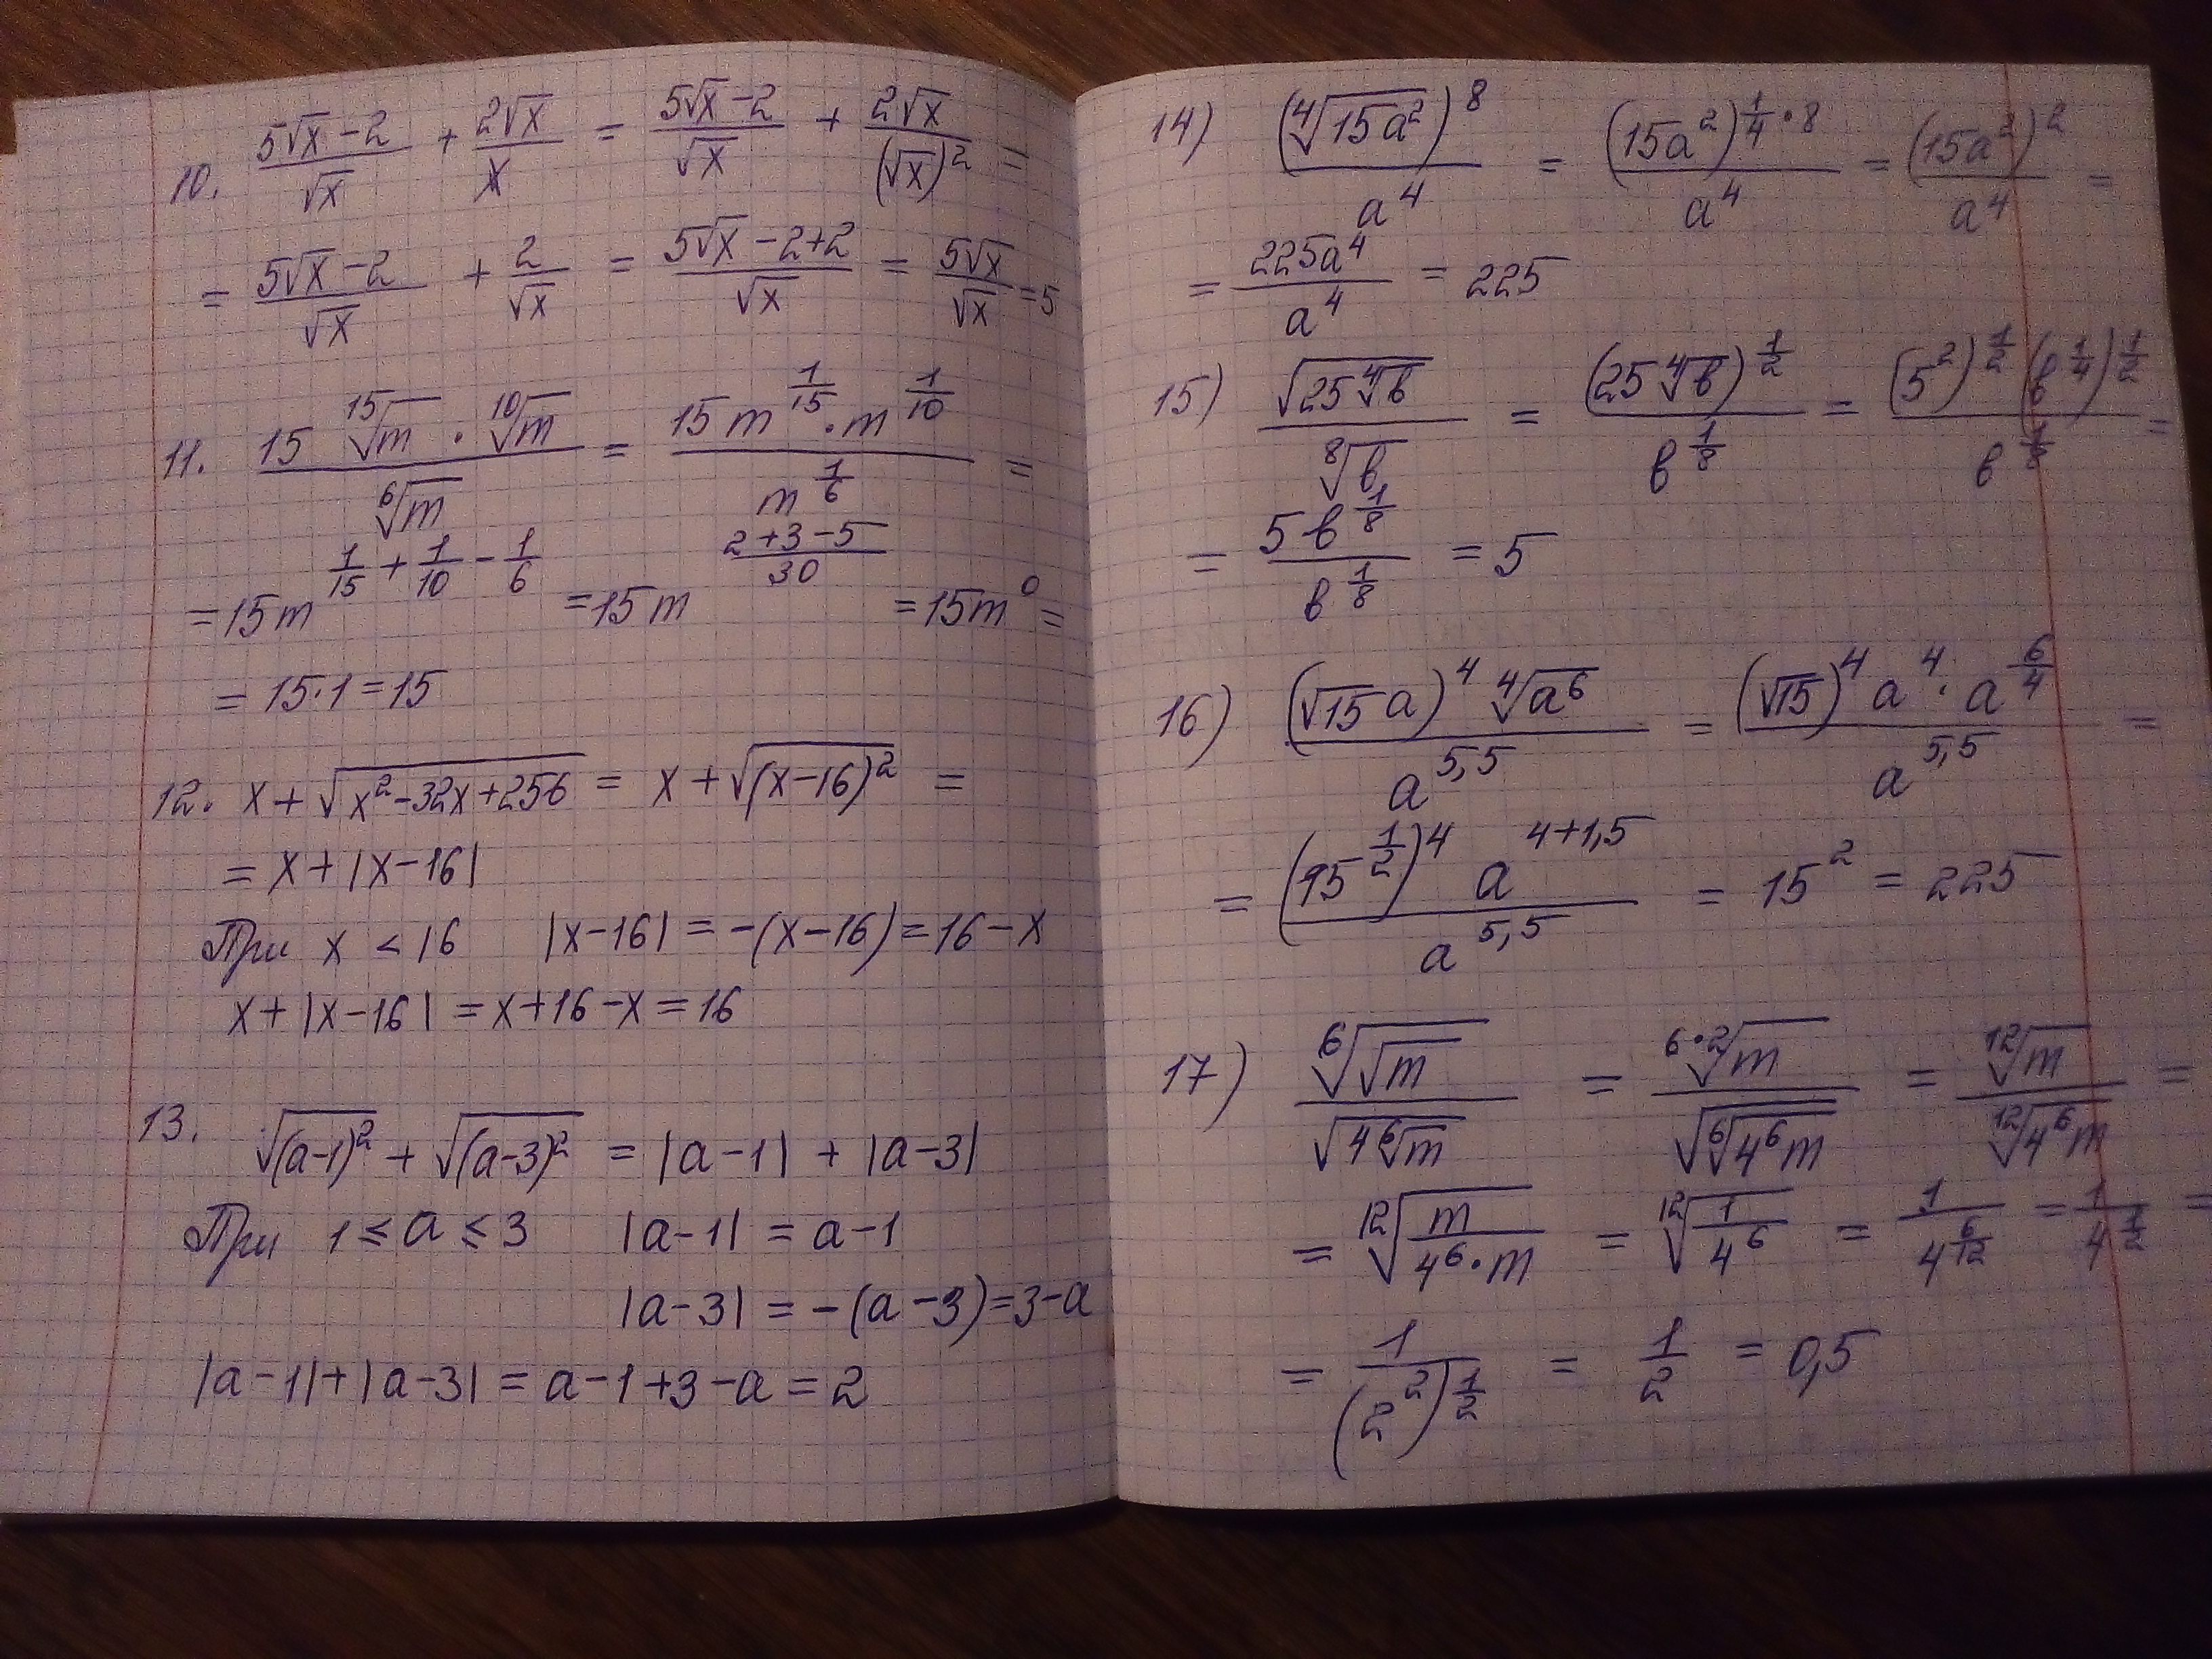 10. (5√x − 2)/√x + 2√x/x = (5√x − 2)/√x + 2√x/(√x)² =
= (5√x − 2)/√x + 2/√x = (5√x − 2 + 2)/√x = 5√x/√x = 5
11. (15 ¹⁵√m · ¹⁰√m)/⁶√m = (15m^(1/15) · m^(1/10))/m^(1/6) =
= 15m^(1/15 + 1/10 − 1/6) = 15m^((2+3−5)/30) = 15m⁰ =
= 15·1 = 15
12. x + √(x² − 32x + 256) = x + √((x−16)²) =
= x + |x−16|
При x < 16 |x−16| = −(x−16) = 16 − x
x + |x−16| = x + 16 − x = 16
13. √((a−1)²) + √((a−3)²) = |a−1| + |a−3|
При 1 ≤ a ≤ 3 |a−1| = a−1
|a−3| = −(a−3) = 3−a
|a−1| + |a−3| = a−1+3−a = 2
14) (⁴√(15a²))⁸/a⁴ = (15a²)^(1/4·8)/a⁴ = (15a²)²/a⁴ =
= 225a⁴/a⁴ = 225
15) √(25 ⁴√в)/⁸√в = (25 ⁴√в)^(1/2)/в^(1/8) = (5²)^(1/2) (в^(1/4))^(1/2)/в^(1/8) =
= 5в^(1/8)/в^(1/8) = 5
16) (√15 a)⁴ ⁴√(a⁶)/a^(5,5) = (√15)⁴ a⁴ · a^(6/4)/a^(5,5) =
= (15^(1/2))⁴ a^(4+1,5)/a^(5,5) = 15² = 225
17) ⁶√(√m)/√(4 ⁶√m) = ⁶·²√m/√(⁶√(4⁶m)) = ¹²√m/¹²√(4⁶m) =
= ¹²√(m/(4⁶·m)) = ¹²√(1/4⁶) = 1/4^(6/12) = 1/4^(1/2) =
= 1/(2²)^(1/2) = 1/2 = 0,5